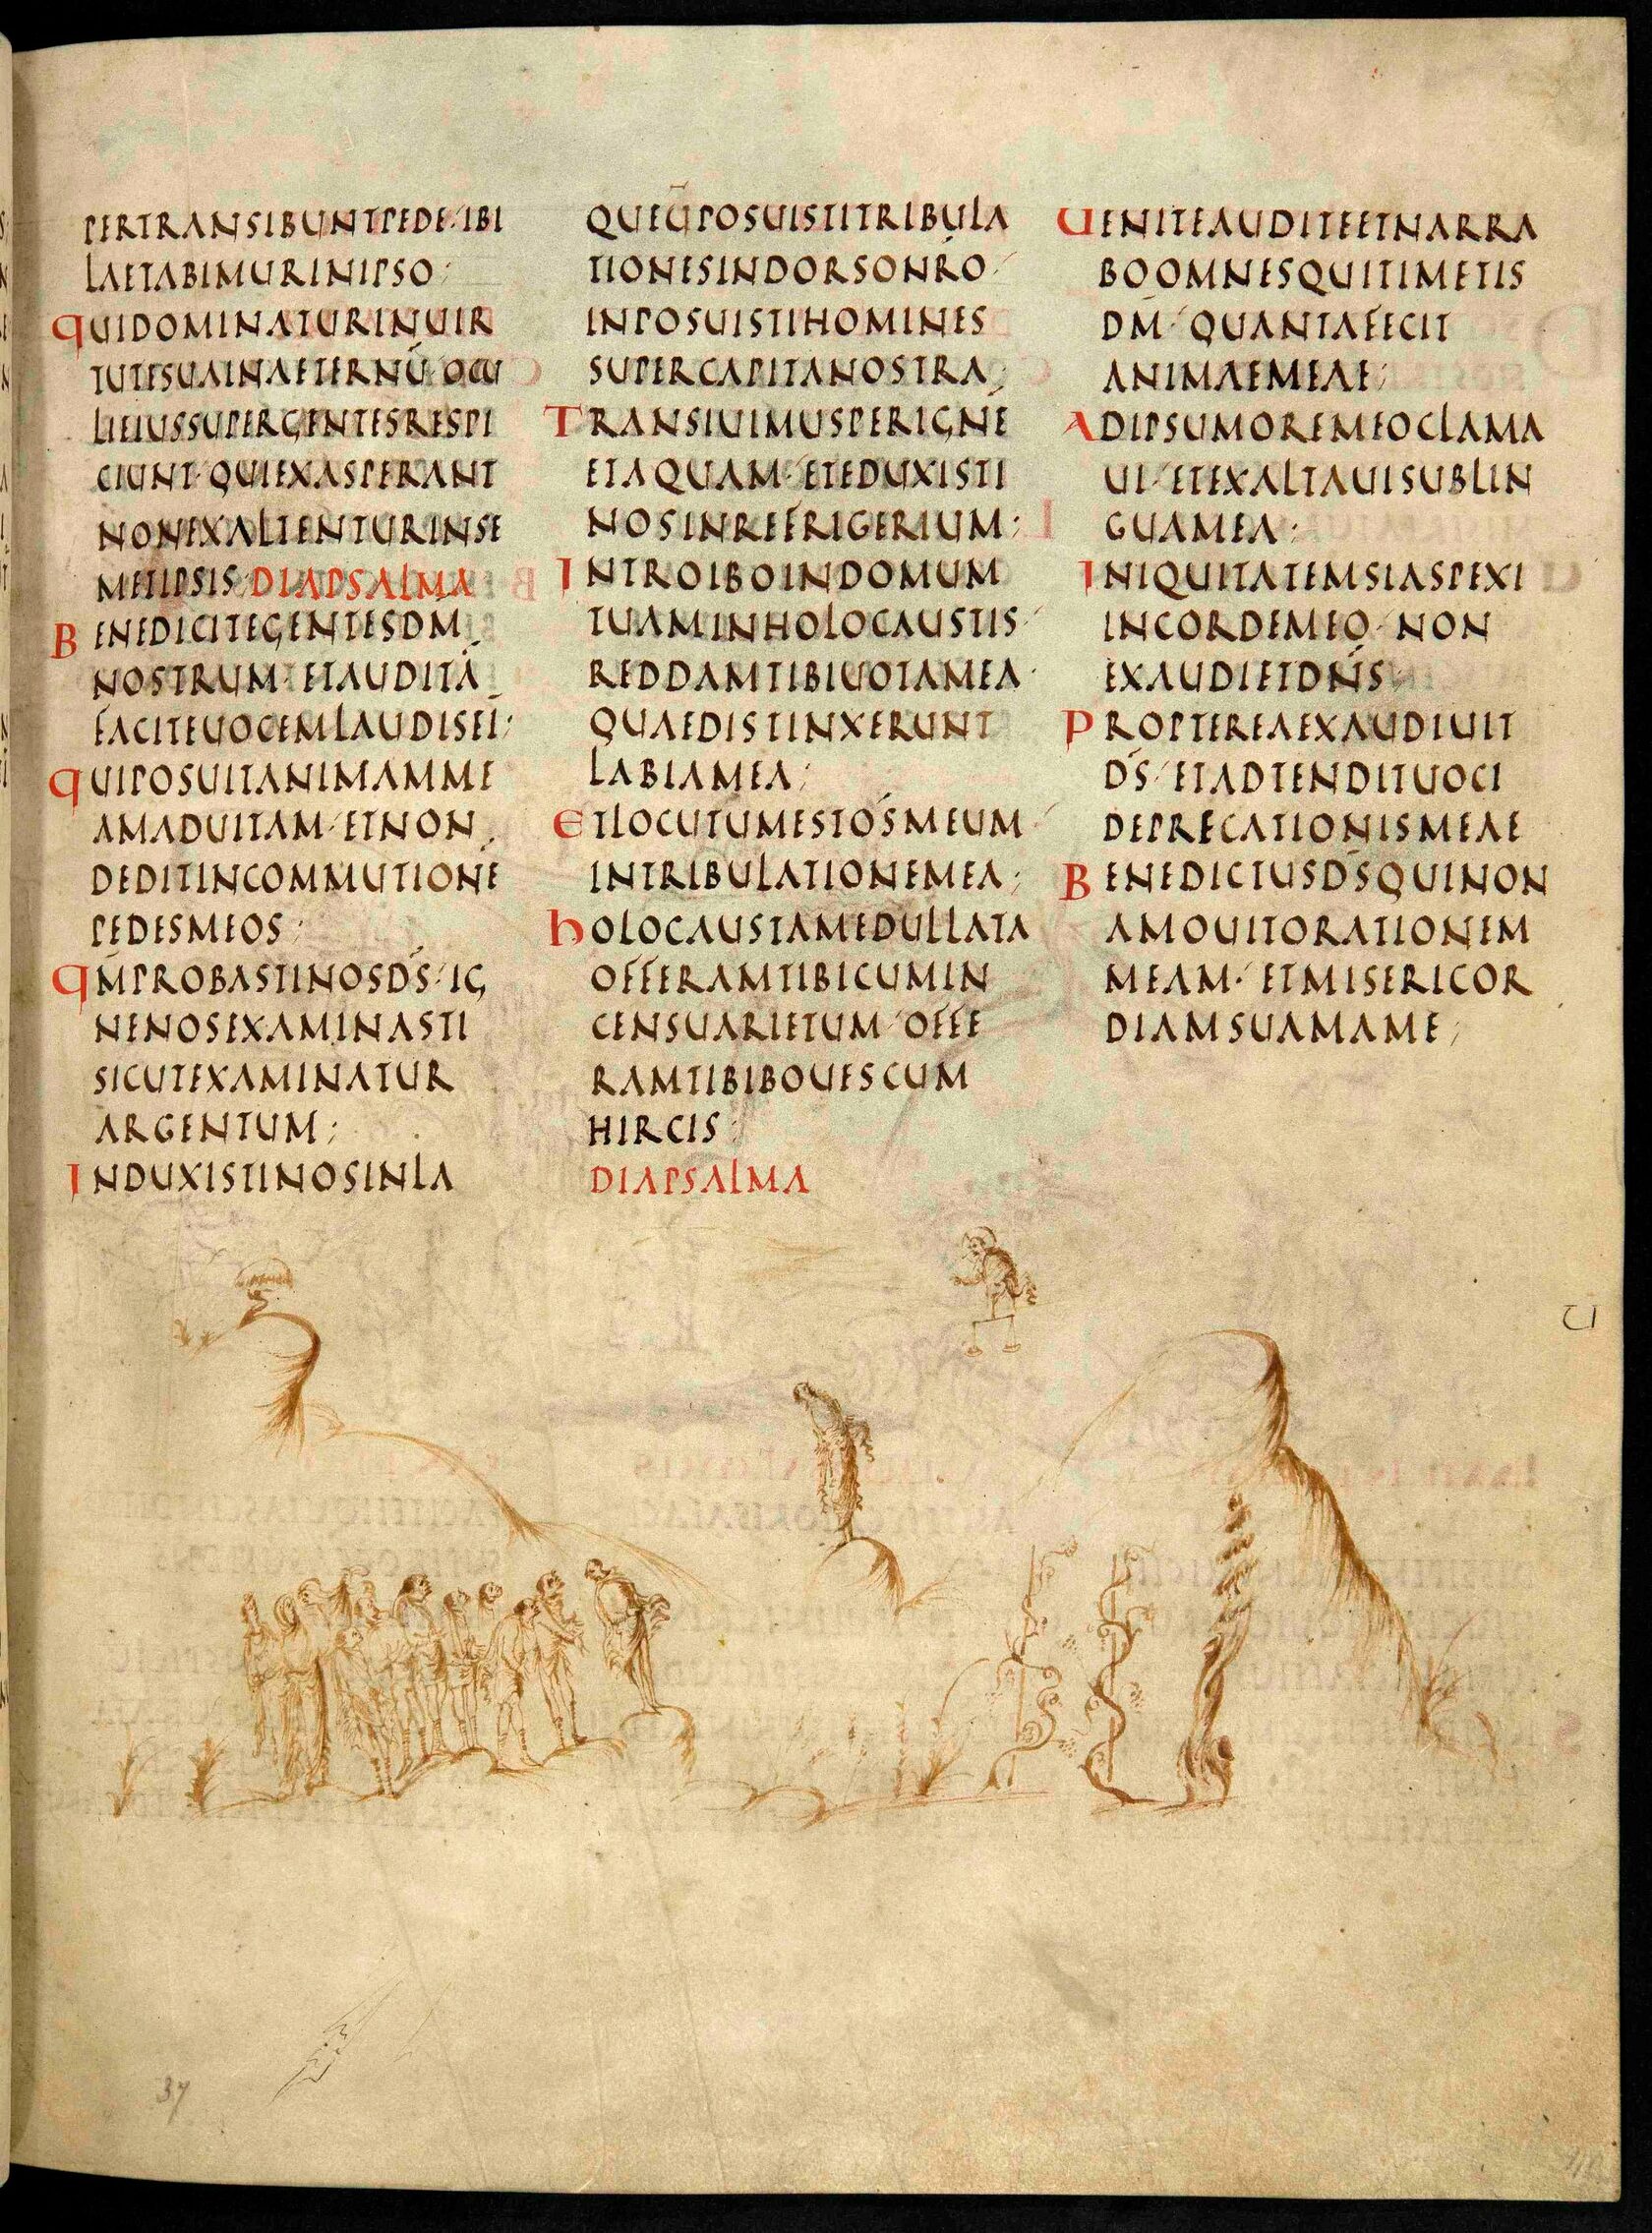 PERTRANSIBUNTPEDE·IBI
LAETABIMURINIPSO;
QUIDOMINATURINUIR
TUTESUAINAETERNŪ·OCU
LIEIUSSUPERGENTESRESPI
CIUNT·QUIEXASPERANT
NONEXALTENTURINSE
METIPSIS·DIAPSALMA
BENEDICITEGENTESDM̄
NOSTRUM·ETAUDITĀ
FACITEUOCEMLAUDISEI·
QUIPOSUITANIMAMME
AMADUITAM·ETNON
DEDITINCOMMUTIONĒ
PEDESMEOS;
QM̄PROBASTINOSD̄S·IG
NENOSEXAMINASTI
SICUTEXAMINATUR
ARGENTUM;
INDUXISTINOSINLA
QUEŪPOSUISTITRIBULA
TIONESINDORSONR̄O·
INPOSUISTIHOMINES
SUPERCAPITANOSTRA;
TRANSIUIMUSPERIGNĒ
ETAQUAM·ETEDUXISTI
NOSINREFRIGERIUM;
INTROIBOINDOMUM
TUAMINHOLOCAUSTIS·
REDDAMTIBIUOTAMEA·
QUAEDISTINXERUNT
LABIAMEA;
ETLOCUTUMESTOSMEUM·
INTRIBULATIONEMEA;
HOLOCAUSTAMEDULLATA
OFFERAMTIBICUMIN
CENSUARIETUM·OFFE
RAMTIBIBOUESCUM
HIRCIS;
DIAPSALMA
UENITEAUDITEETNARRA
BOOMNESQUITIMETIS
DM̄·QUANTAFECIT
ANIMAEMEAE;
ADIPSUMOREMEOCLAMA
UI·ETEXALTAUISUBLIN
GUAMEA;
INIQUITATEMSIASPEXI
INCORDEMEO·NON
EXAUDIETDN̄S
PROPTEREAEXAUDIUIT
D̄S·ETADTENDITUOCI
DEPRECATIONISMEAE
BENEDICTUSD̄SQUINON
AMOUITORATIONEM
MEAM·ETMISERICOR
DIAMSUAMAME;
37